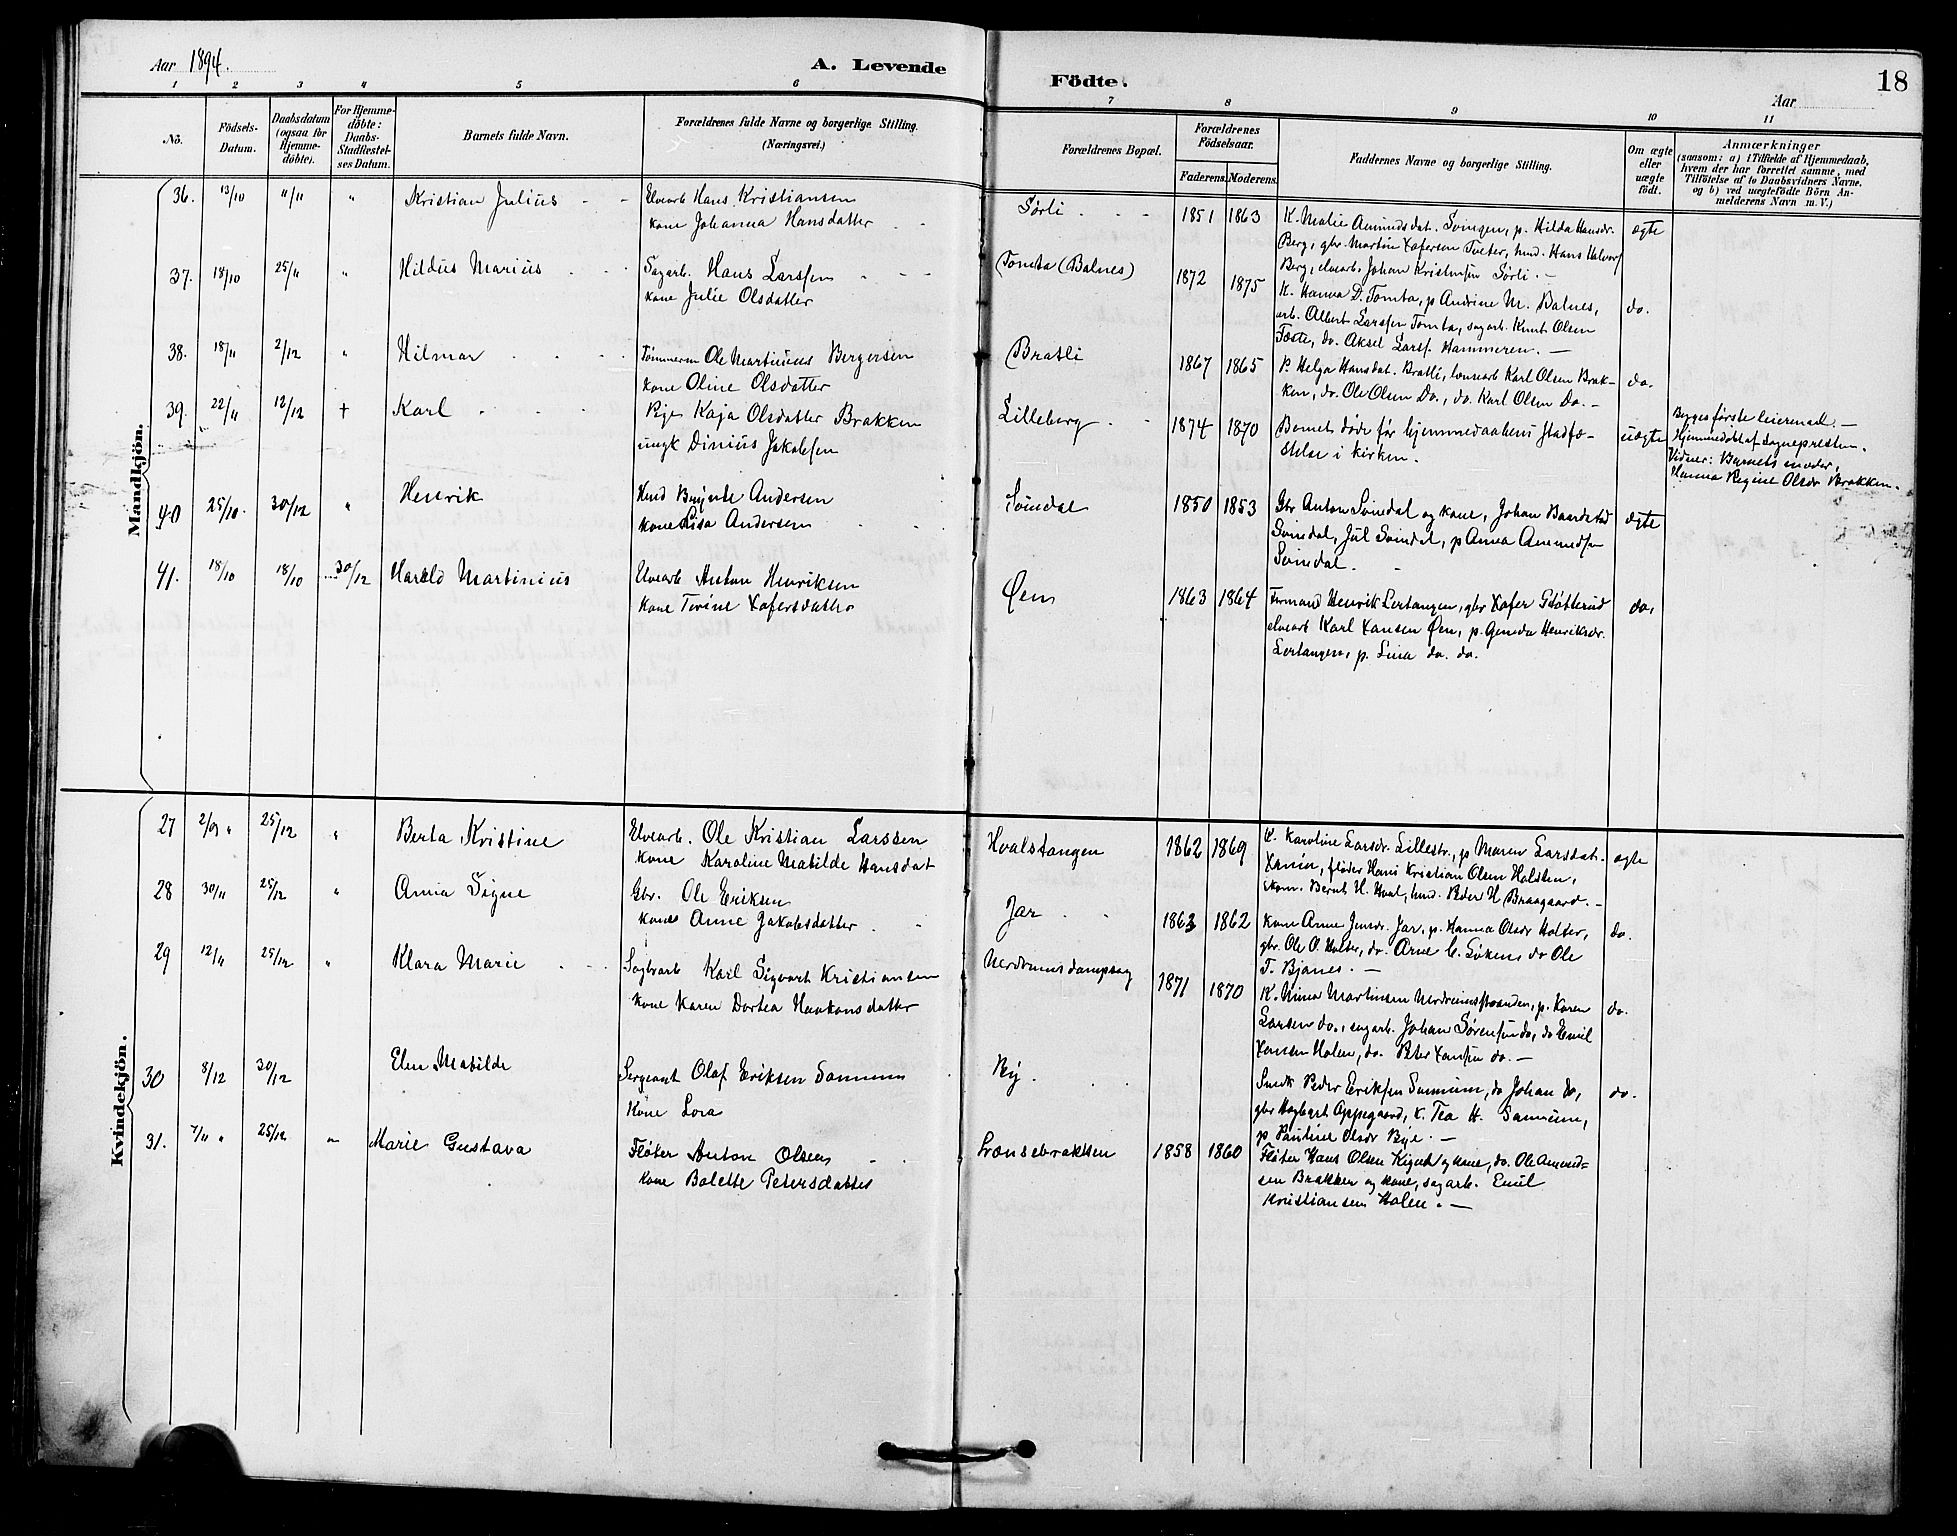 Aar 1894.
A. Levende Födte.
Aar
18
1 2 3 4 5 6 7 8 9 10 11
No.
Födsels-Datum.
Daabsdatum (ogsaa for Hjemme-döbte).
For Hjemme-döbte: Daabs-Stadfæstel-ses Datum.
Barnets fulde Navn.
Forældrenes fulde Navne og borgerlige Stilling. (Næringsvei.)
Forældrenes Bopæl.
Forældrenes Födselsaar.
Faderens. Moderens.
Faddernes Navne og borgerlige Stilling.
Om ægte eller uægte födt.
Anmærkninger
(saasom: a) i Tilfælde af Hjemmedaab,
hvem der har forrettet samme, med
Tilföielse af to Daabsvidners Navne.
og b) ved uægtefödte Börn An-
melderens Navn m. V.)
Mandkjön.
36. 13/10 11/11 " Kristian Julius
Elvearb Hans Kristiansen
kone Johanna Hansdatter
Sörli 1851 1863
K. Malie Amundsdat. Svingen, p. Hilda Hansdr.
Berg, gbr. Martin Xofersen Tveter, hmd. Hans Halvors
Berg, elvearb. Johan Kristensen Sörli. —
ægte
37. 18/10 25/11 " Hildus Marius
Sagarb. Hans Larssen
kone Julie Olsdatter
Tomta (Balnes) 1872 1875
K. Hanna D. Tomta, p Andrine M. Balnes,
arb. Albert Larssen Tomta, sagarb. Knut Olsen
Foste, do. Aksel Larss. Hammeren. —
do.
38. 18/11 2/12 " Hilmar
Tømmerm Ole Martinius Bergersen
kone Oline Olsdatter
Bratli 1867 1865
P. Helga Hansdat. Bratli, lænsearb Karl Olsen Brak-
ken, do. Ole Olsen Do., do. Karl Olsen Do. —
do.
39. 22/11 12/12 + Karl
Pige Kaja Olsdatter Brakken
ungk Dinius Jakobsen
Lilleberg 1874 1870
Barnet døde før hjemmedaabens stadfæ-
stelse i kirken.
uægte
Begges første leiermaal. —
Hjemmedøbt af Sognepresten.
Vidner: Barnets moder,
Hanna Regine Olsdr Brakken.
40 25/10. 30/12 " Henrik
Hmd Brynte Andersen
kone Lisa Andersen
Soindal 1850 1853
Gbr Anton Soindal og kone, Johan Baardstad
Soindal, Jul Soindal, p Anna Amundsen
Soindal.
ægte
41. 18/10 18/10 30/12 Harald Martinius
Elvearb Anton Henriksen
kone Terine Xofersdatter
Øen 1863 1864
Formand Henrik Lertangen, gbr Xofer Glötterud
elvearb Karl Xansen Øen, p. Gunda Henriksdr.
Lertangen, p. Lina do. do.
do.
Kvindekjön.
27 2/9 " 25/12 " Berta Kristine
Elvearb. Ole Kristian Larssen
kone Karoline Matilde Hansdat
Hvalstangen 1862 1869
K. Karoline Larsdr. Lillestr., p Maren Larsdat.
Xania, fløder Hans Kristian Olsen Holsten,
skom. Bernt H. Hval, hmd. Peder H Braagaard. —
ægte
28 30/11 25/12 " Anna Signe
Gbr. Ole Eriksen
kone Anne Jakobsdatter
Jar 1863 1862
Kone Anne Jensdr. Jar, p. Hanna Olsdr Holter,
gbr. Ole O. Holter, do. Arne C. Løken, do Ole
T. Bjanes. —
do.
29 12/11 25/12 " Klara Marie
Sagbarb Karl Sigvart Kristiansen
kone Karen Dortea Haakonsdatter
Nerdrumsdampsag 1871 1870
K. Mina Martinsen Nerdrumsstranden, p. Karen
Larsen do., sagarb. Johan Sørensen do, do Emil
Xansen Holen, do. Peter Xansen do. —
do.
30 8/12 30/12 Elen Matilde
Sergeant Olaf Eriksen Sannum
Kone Lora
By
Smedk Peder Eriksen Sannum, do Johan Do,
gbr Hagbart Oppegaard, K. Tea H. Sannum,
p. Pauline Olsdr Bye. —
do.
31. 7/11 " 25/12 " Marie Gustava
Fløter Anton Olsen
kone Bolette Petersdatter
Lænsebrakken 1858 1860
Fløter Hans Olsen og kone, do. Ole Amund-
sen Brakken og kone, sagarb. Emil
Kristiansen Holen. —